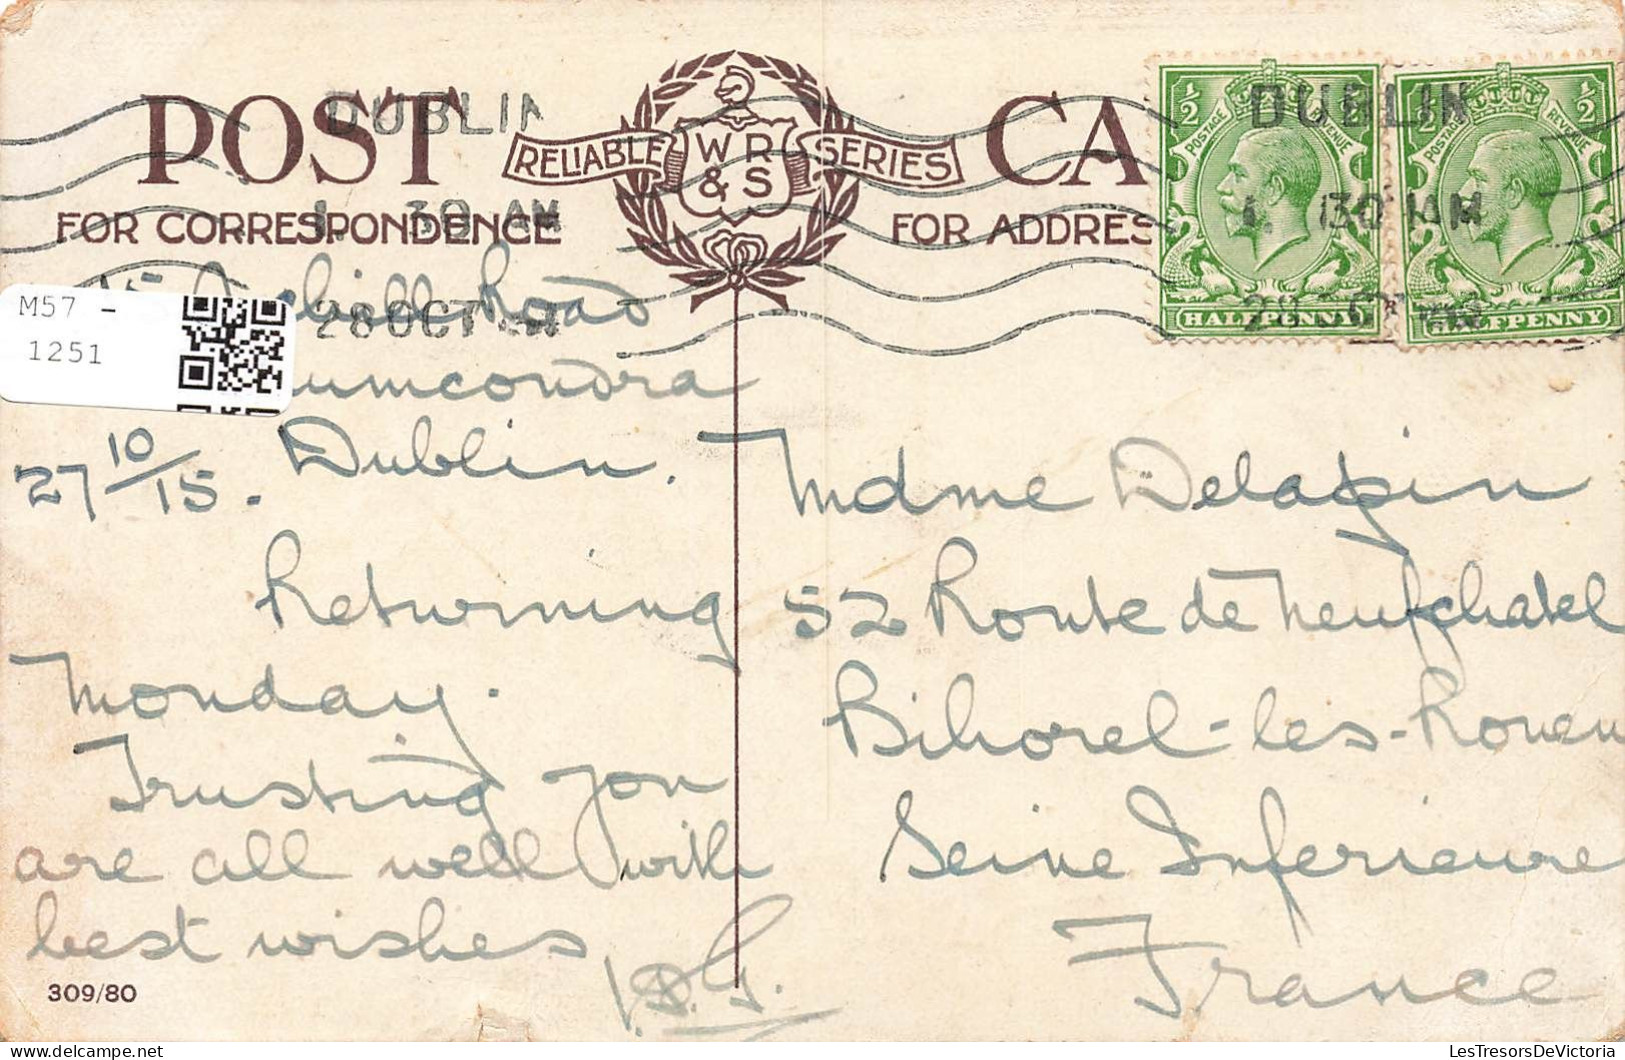 POST CA
RELIABLE WR & S SERIES
FOR CORRESPONDENCE
FOR ADDRES
DUBLIN
1. 30 AM
28 OCT
½ ½
POSTAGE REVENUE
HALFPENNY
½ ½
POSTAGE REVENUE
HALFPENNY
DUBLIN
1. 30 AM
28 OCT
M57 -
1251
Road
umcondra
Dublin.
27 10/15.
Returning
Monday.
Trusting you
are all well with
best wishes
309/80
Mdme Delapin
52 Route de Neufchatel
Bihorel-les-Rouen
Seine Inferieure
France
LesTresorsDeVictoria